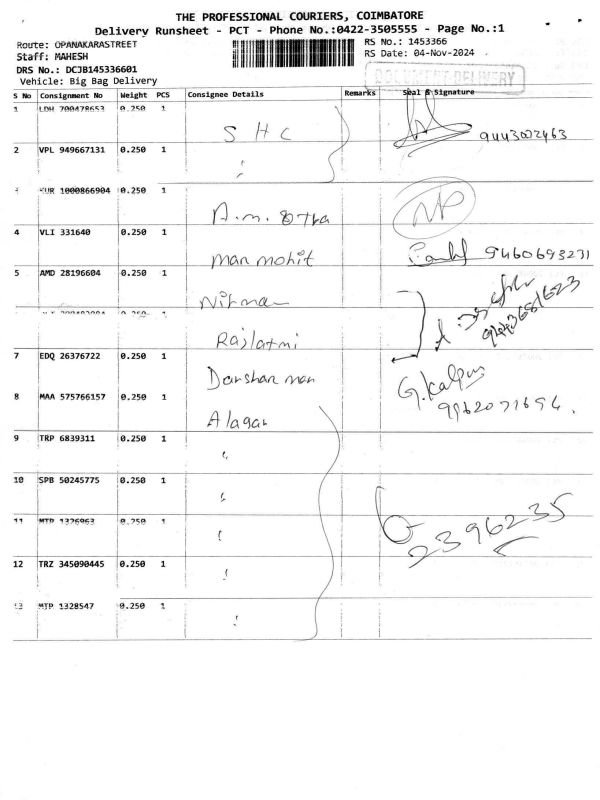 THE PROFESSIONAL COURIERS, COIMBATORE
Delivery Runsheet - PCT - Phone No.:0422-3505555 - Page No.:1
Route: OPANAKARASTREET
Staff: MAHESH
DRS No.: DCJB145336601
Vehicle: Big Bag Delivery
RS No.: 1453366
RS Date: 04-Nov-2024
DOCUMENT DELIVERY
S No Consignment No Weight PCS Consignee Details Remarks Seal & Signature
1 LDH 700478653 0.250 1 SHC 9443002463
2 VPL 949667131 0.250 1 "
3 KUR 1000866904 0.250 1 A.m. NP
4 VLI 331640 0.250 1 man mohit 9460693231
5 AMD 28196604 0.250 1
0.250 1 Rajlatmi
7 EDQ 26376722 0.250 1 Darshan man G.Kalpus
8 MAA 575766157 0.250 1 Alagar 9962071694.
9 TRP 6839311 0.250 1 "
10 SPB 50245775 0.250 1 "
11 MTP 1326963 0.250 1 " 2396235
12 TRZ 345090445 0.250 1 "
13 MTP 1328547 0.250 1 "